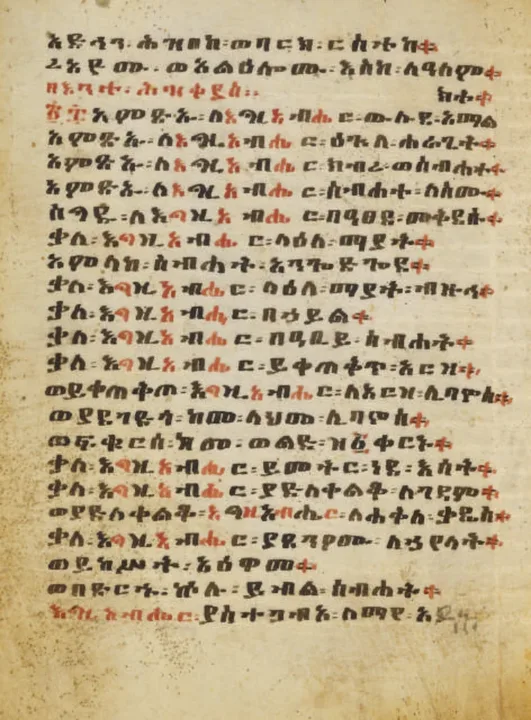 አድኅን፡ሕዝበከ፡ወባርክ፡ርስተከ።
ረአዮሙ፡ወአልዕሎሙ፡እስከ፡ለዓለም።
፳፰ አምጽኡ፡ለእግዚአብሔር፡ውሉደ፡አማል
አምጽኡ፡ለእግዚአብሔር፡ዕጕለ፡ሐራጊት።
አምጽኡ፡ለእግዚአብሔር፡ክብረ፡ወስብሐተ።
አምጽኡ፡ለእግዚአብሔር፡ስብሐተ፡ለስሙ።
ስግዱ፡ለእግዚአብሔር፡በዓፀደ፡መቅደሱ።
ቃለ፡እግዚአብሔር፡ላዕለ፡ማያት።
አምላከ፡ስብሐት፡አንጐድጐደ።
ቃለ፡እግዚአብሔር፡ላዕለ፡ማያት፡ብዙኅ።
ቃለ፡እግዚአብሔር፡በኃይል።
ቃለ፡እግዚአብሔር፡በዓቢይ፡ስብሐት።
ቃለ፡እግዚአብሔር፡ይቀጠቅጥ፡አርዝ።
ወይቀጠቅጦ፡እግዚአብሔር፡ለአርዝ፡ሊባኖስ።
ከመ፡ላህመ፡ሊባኖስ።
ወፍቁርሰ፡ከመ፡ወልድ፡ዘ፩ቀርኑ።
ቃለ፡እግዚአብሔር፡ይመትር፡ነደ፡እሳት።
ቃለ፡እግዚአብሔር፡ያድለቀልቆ፡ለገዳም።
ወያድለቀልቆ፡እግዚአብሔር፡ለሐቅለ፡ቃዴስ።
ቃለ፡እግዚአብሔር፡ያጸንዖሙ፡ለኃየላት።
ወይከሥት፡አዕዋመ።
ወበጽርሑ፡ኵሉ፡ይብል፡ስብሐት።
እግዚአብሔር፡ያስተጋብኦ፡ለማየ፡አይኅ።